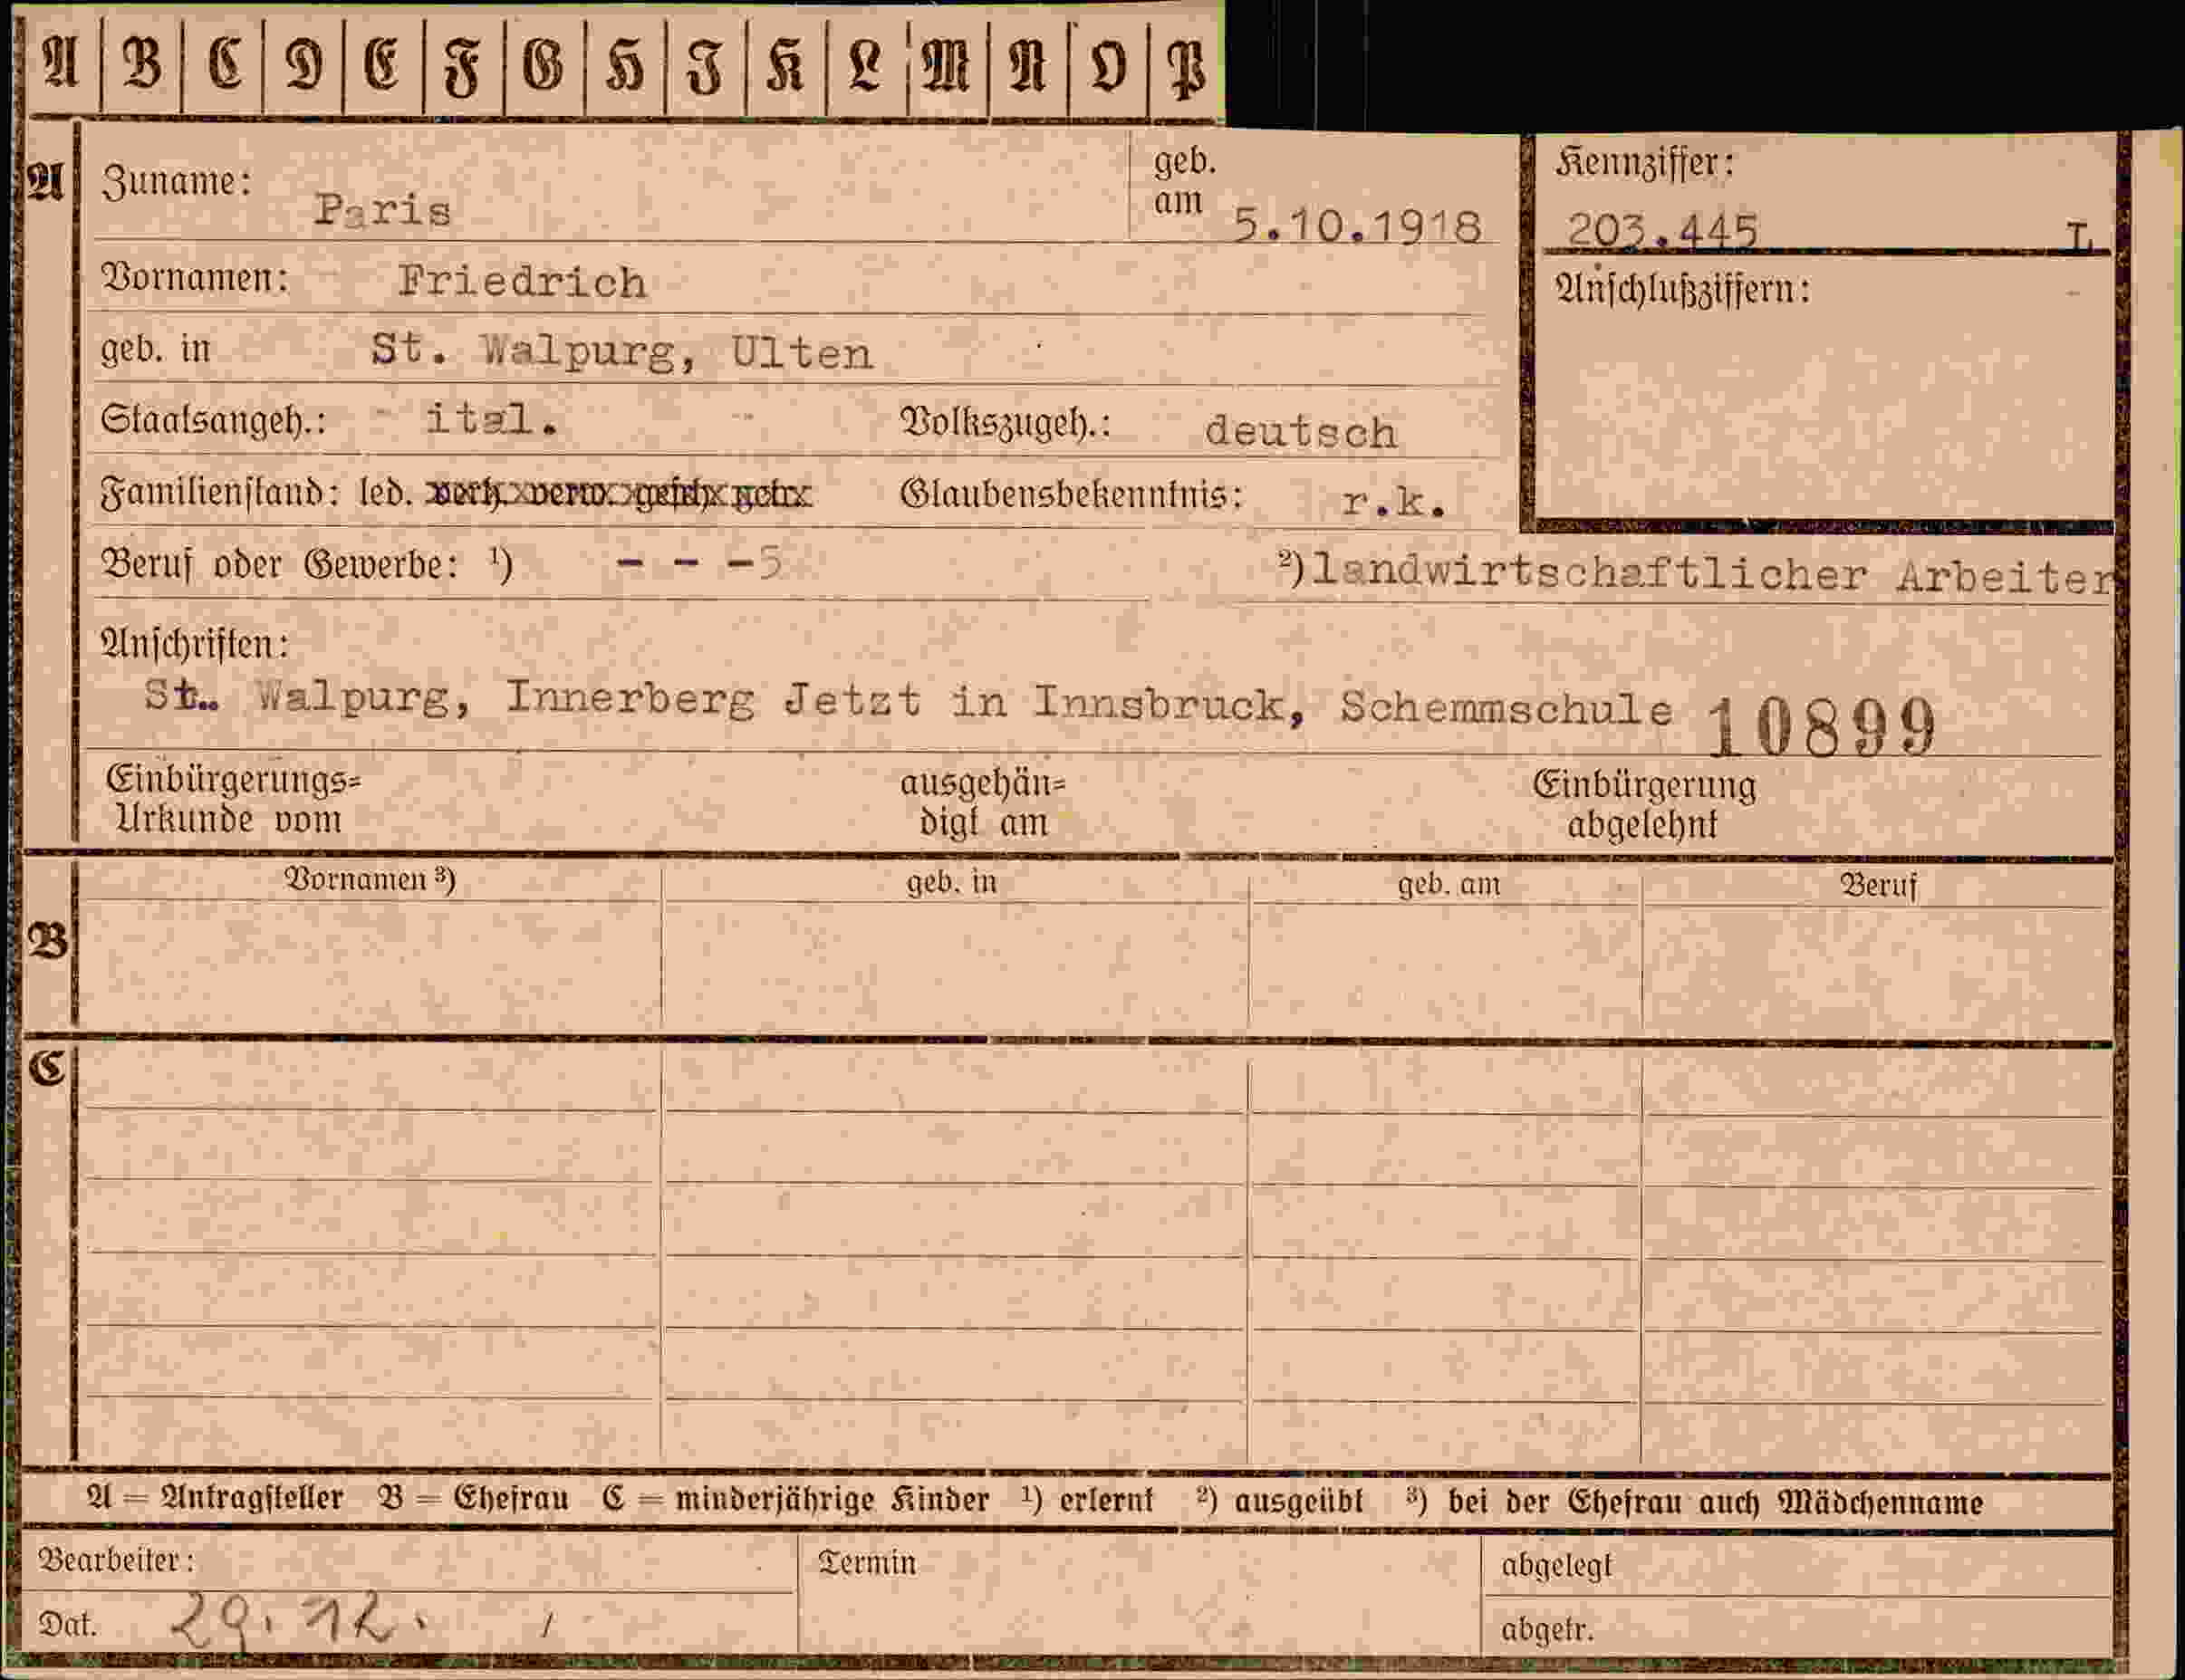 A B C D E F G H I K L M N O P
A Zuname: Paris geb. am 5.10.1918 Kennziffer: 203.445 I
Vornamen: Friedrich Anschlußziffern:
geb. in St. Walpurg, Ulten
Staatsangeh.: ital. Volkszugeh.: deutsch
Familienstand: led. verh. verw. gesch. getr. Glaubensbekenntnis: r.k.
Beruf oder Gewerbe: ¹) - - -5 ²) landwirtschaftlicher Arbeiter
Anschriften:
St.. Walpurg, Innerberg Jetzt in Innsbruck, Schemmschule 10899
Einbürgerungs= ausgehän= Einbürgerung
Urkunde vom digt am abgelehnt
Vornamen ³) geb. in geb. am Beruf
B
C
A = Antragsteller B = Ehefrau C = minderjährige Kinder ¹) erlernt ²) ausgeübt ³) bei der Ehefrau auch Mädchenname
Bearbeiter: Termin abgelegt
Dat. 29. 12. abgetr.